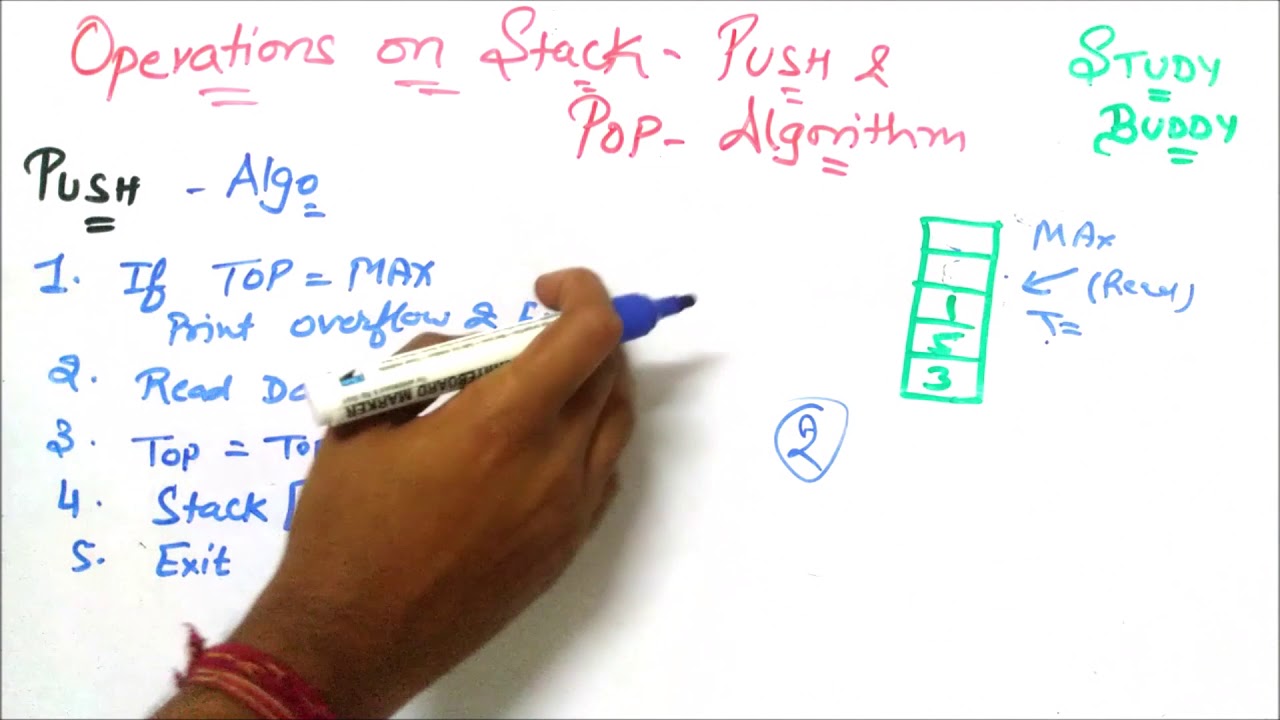 Operations on Stack - PUSH &
POP - Algorithm
STUDY
BUDDY
PUSH - Algo
1. If TOP = MAX
Print overflow &
2. Read
3. Top =
4. Stack [
5. Exit
MAX
T=
1
5
3
2